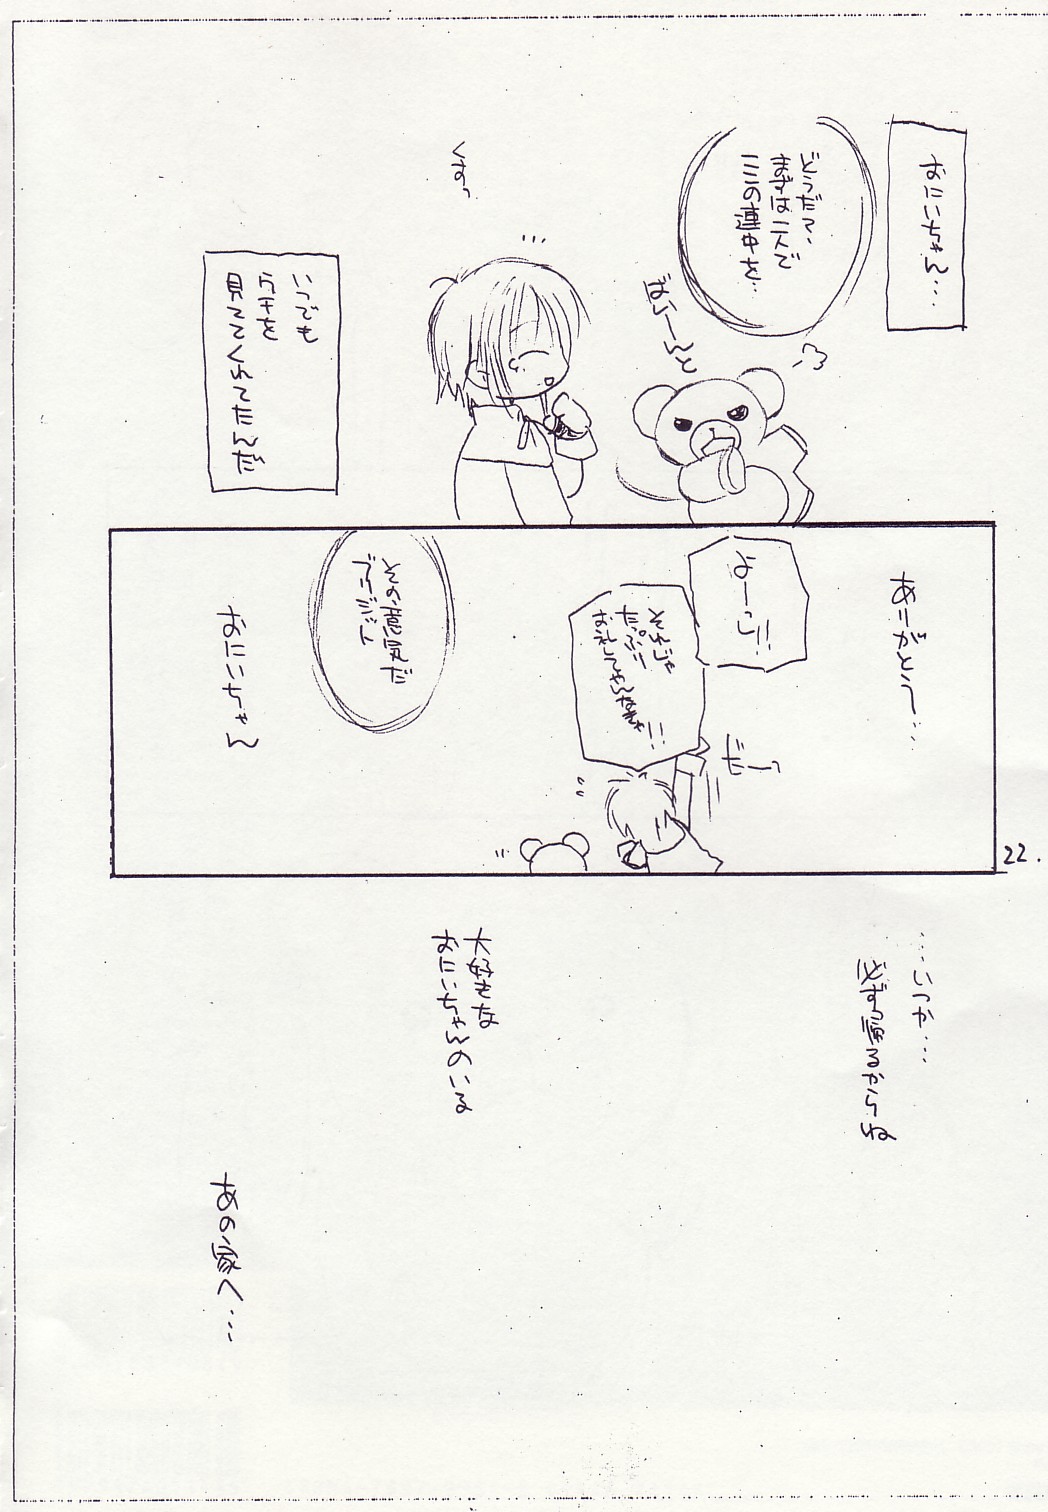 おにいちゃん…
どうだ？、
まずは二人で
ここの連中を…
ばーんと
くすっ
いつでも
ウチを
見ててくれてたんだ
ありがとう……
よーし!!
それじゃ
たっぷり
お礼してもらわなきゃ!!
ビシーっ
その意気だ
ブリジット
おにいちゃん
22.
……いつか…
必ず帰るからね
大好きな
おにいちゃんのいる
あの家へ…